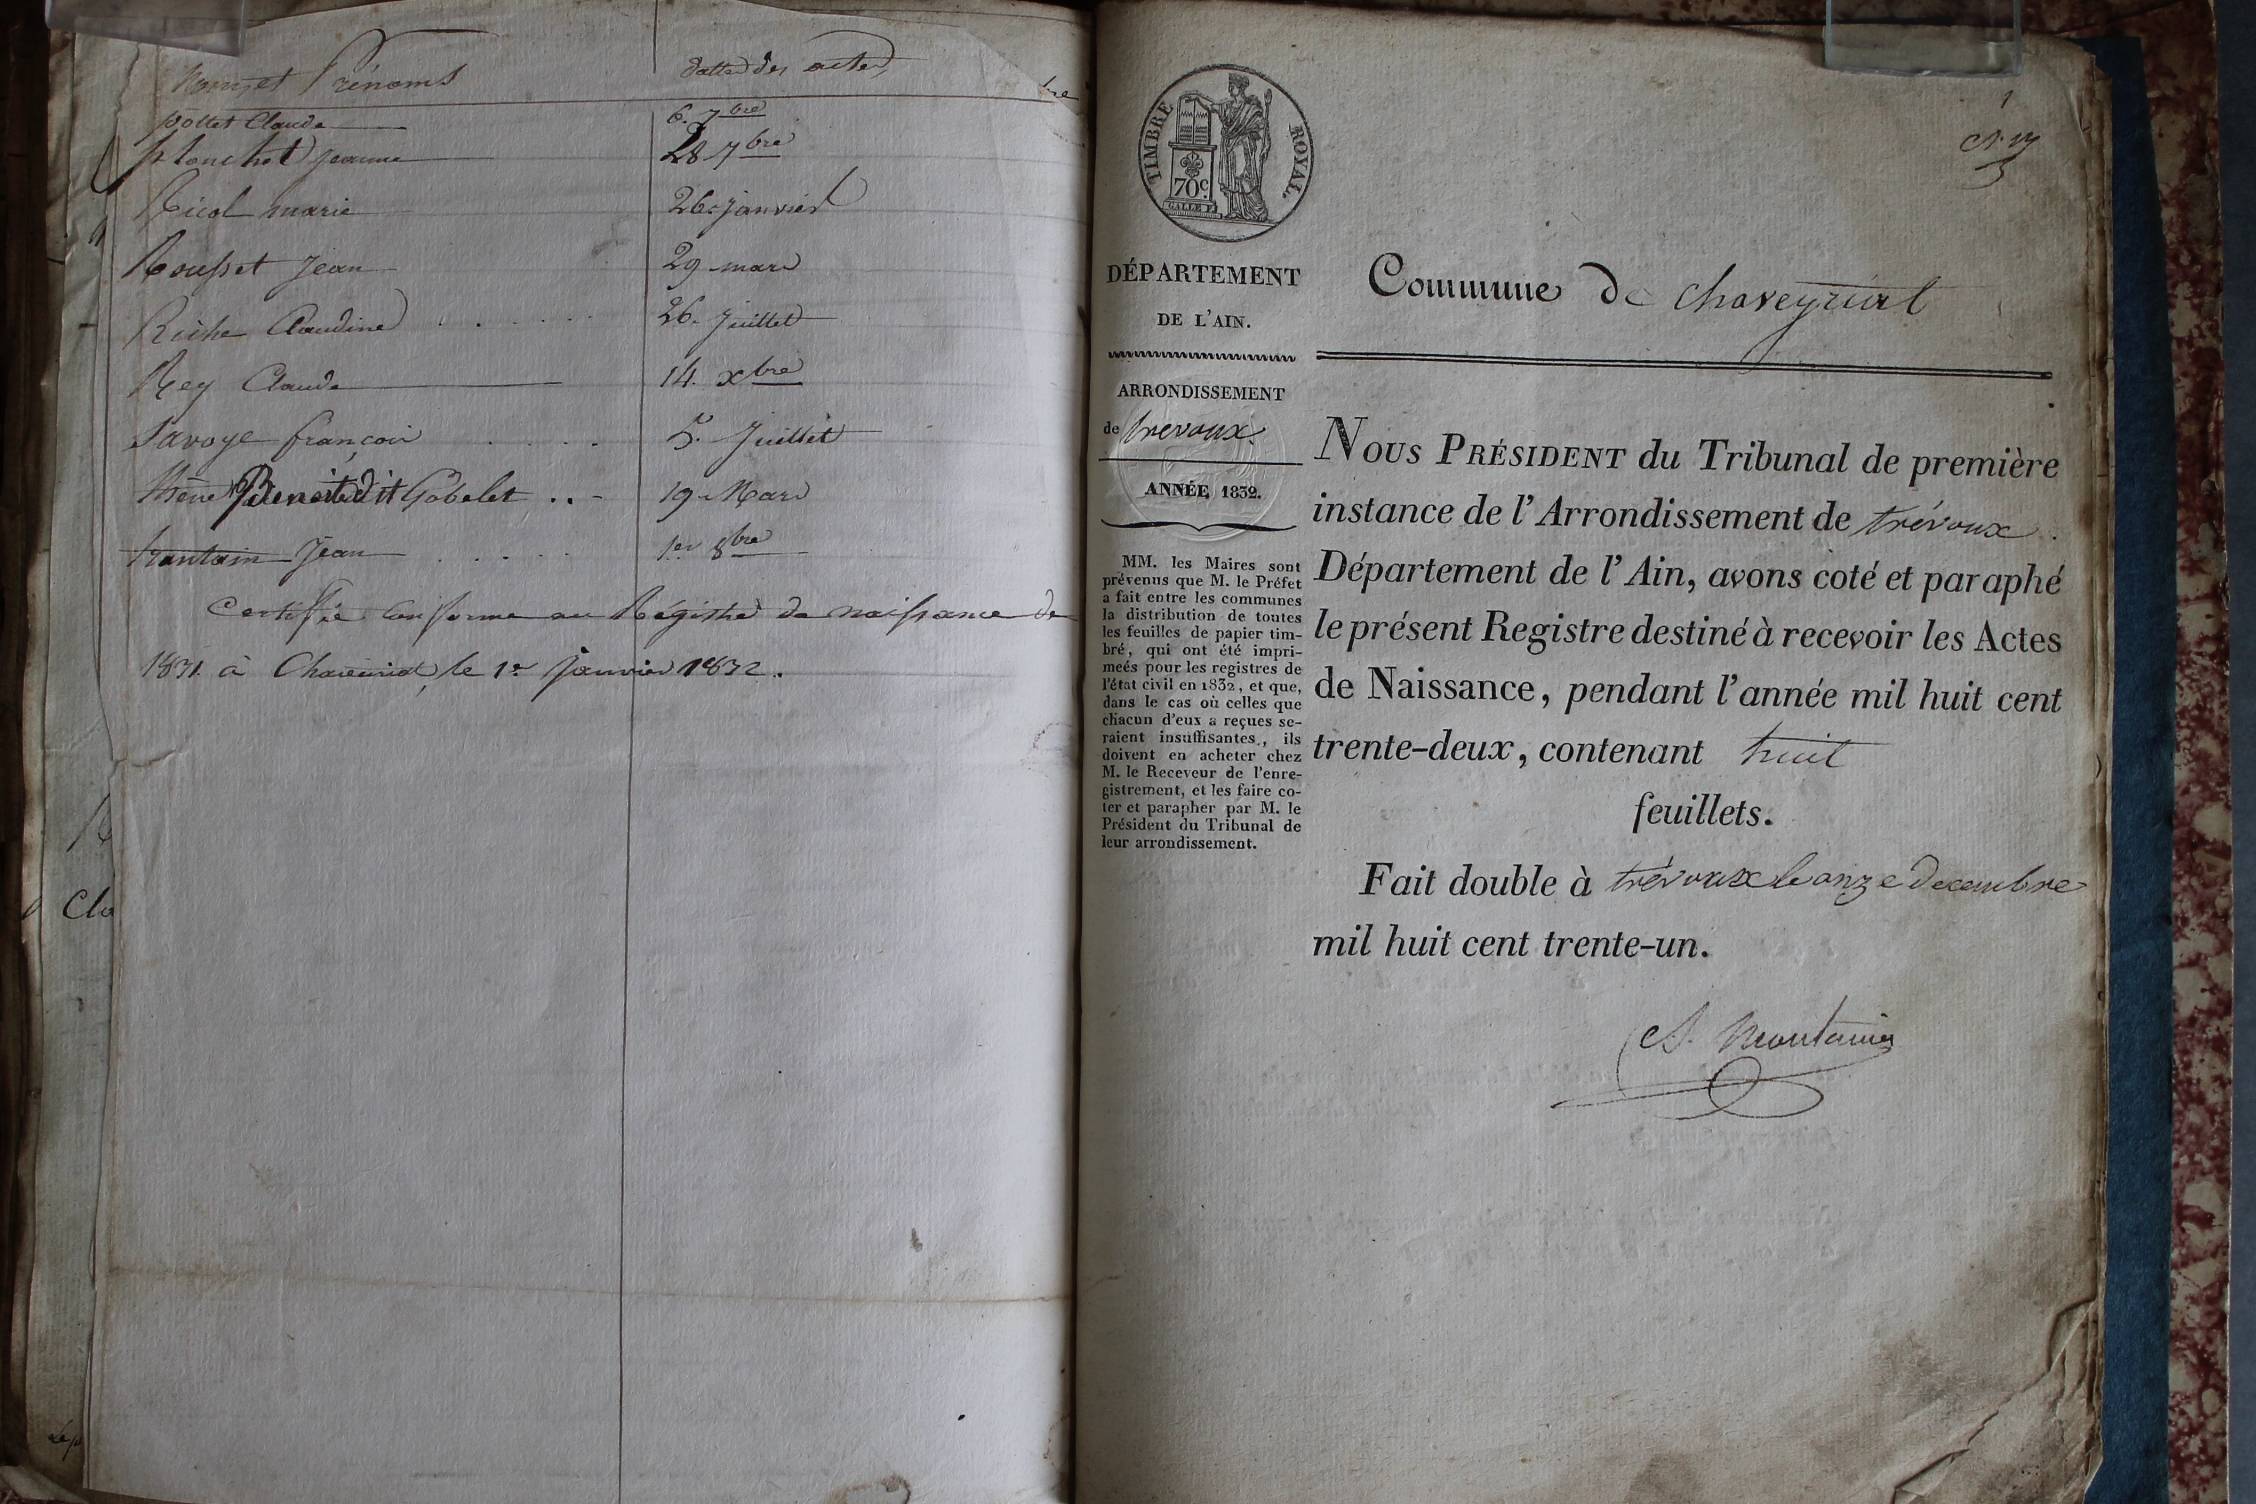 Noms et Prénoms
dattes des actes
pottet Claude
6. 7bre
planchet jeanne
28 7bre
Nicol marie
26 janvier
Rousset Jean
29 mars
Riche Claudine
26. Juillet
Rey Claude
14. xbre
Savoye françois
5. Juillet
Benoite dit Gobelet
19 Mars
trantain Jean
1er 8bre
Certifié conforme au Régistre de naissance de
1831. à Chaveiriat, le 1er janvier 1832.
TIMBRE ROYAL.
70c.
DÉPARTEMENT
DE L'AIN.
ARRONDISSEMENT
de trevoux.
ANNÉE 1832.
MM. les Maires sont
prévenus que M. le Préfet
a fait entre les communes
la distribution de toutes
les feuilles de papier tim-
bré, qui ont été impri-
meés pour les registres de
l'état civil en 1832, et que,
dans le cas où celles que
chacun d'eux a reçues se-
raient insuffisantes, ils
doivent en acheter chez
M. le Receveur de l'enre-
gistrement, et les faire co-
ter et parapher par M. le
Président du Tribunal de
leur arrondissement.
1
Commune de chaveyriat
NOUS PRÉSIDENT du Tribunal de première
instance de l'Arrondissement de trévoux
Département de l'Ain, avons coté et paraphé
le présent Registre destiné à recevoir les Actes
de Naissance, pendant l'année mil huit cent
trente-deux, contenant huit
feuillets.
Fait double à trévoux le onze decembre
mil huit cent trente-un.